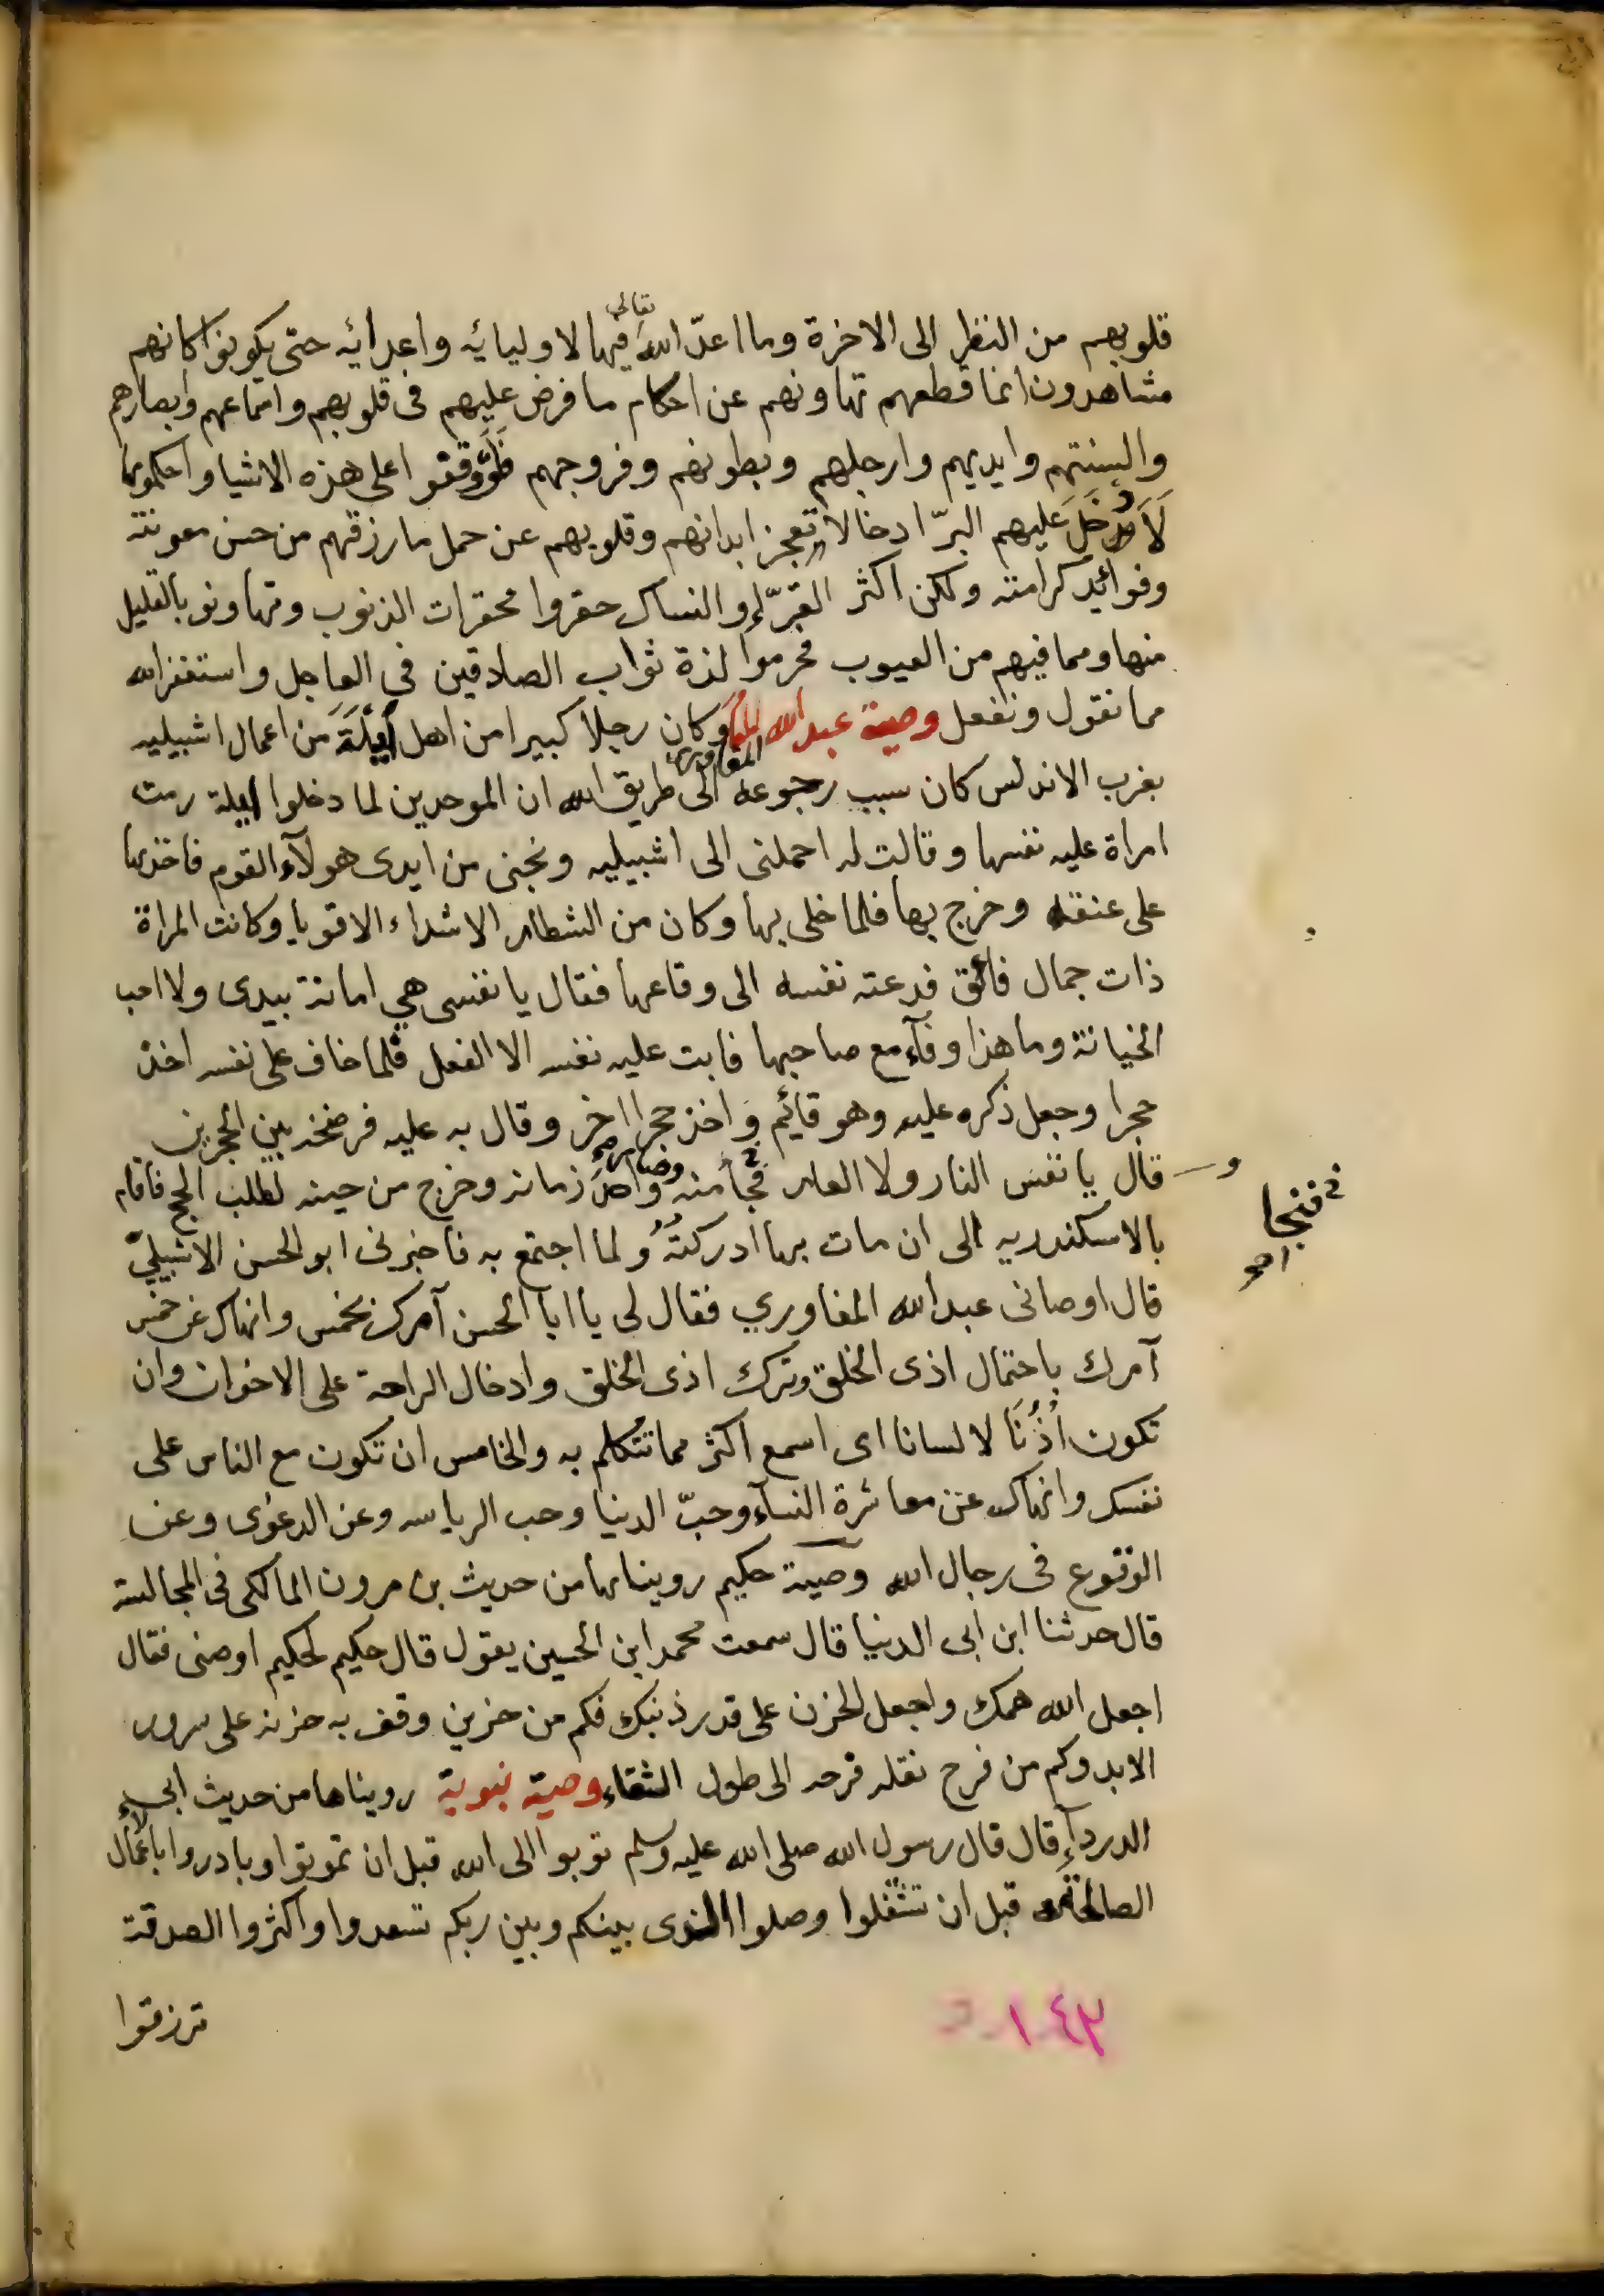 قلوبهم من النظر الى الاخرة وما اعدّ الله تعالى فيها لاوليائه واعدائه حتى يكونوا كانهم
مشاهدون انما قطعهم تهاونهم عن احكام ما فرض عليهم فى قلوبهم واسماعهم وابصارهم
والسنتهم وايديهم وارجلهم وبطونهم وفروجهم فلو وقفوا على هذه الاشيا واحكموها
لَاَدْخَلَ عليهم البرّ ادخالا تعجز ابدانهم وقلوبهم عن حمل ما رزقهم من حسن معونته
وفوائد كرامته ولكن اكثر القرّاء والنساك حقروا محقرات الذنوب وتهاونو بالقليل
منها ومما فيهم من العيوب فحرموا لذة ثواب الصادقين في العاجل واستغفر الله
مما نقول ونفعل وصية عبد الله المغاوري وكان رجلا كبيرا من اهل لَبْلَةَ من اعمال اشبيليه
بغرب الاندلس كان سبب رجوعه الى طريق الله ان الموحدين لما دخلوا لبلة رمت
امراة عليه نفسها وقالت له احملنى الى اشبيليه ونجنى من ايدى هولآء القوم فاخذها
على عنقه وخرج بها فلما خلى بها وكان من الشطار الاشداء الاقويا وكانت المراة
ذات جمال فائق فدعته نفسه الى وقاعها فقال يا نفسى هي امانة بيدى ولا احب
الخيانة وما هذا وفآء مع صاحبها فابت عليه نفسه الا الفعل فلما خاف على نفسه اخذ
حجرا وجعل ذكره عليه وهو قائم وَاخذ حجرا اخر وقال به عليه فرضخه بين الحجرين
وقال يا نفس النار ولا العار فجا منه وَاحدَ زمانه وخرج من حينه لطلب الحج فاقام
فنجا
بالاسكندريه الى ان مات بها ادركتُهُ ولما اجتمع به فاخبرنى ابو الحسن الاشبيلىّ
قال اوصانى عبد الله المغاوري فقال لى يا ابا الحسن آمرك بخمس وانهاك عن خمس
آمرك باحتمال اذى الخلق وترك اذى الخلق وادخال الراحة على الاخوان وان
تكون اُذُنًا لا لسانا اى اسمع اكثر مما تتكلم به والخامس ان تكون مع الناس على
نفسك وانهاك عن معاشرة النسآء وحبّ الدنيا وحب الرياسه وعن الدعوى وعن
الوقوع فى رجال الله وصية حكيم رويناها من حديث بن مرون المالكى فى المجالسة
قال حدثنا ابن ابى الدنيا قال سمعت محمد ابن الحسين يقول قال حكيم لحكيم اوصنى فقال
اجعل الله همك واجعل الحزن على قدر ذنبك فكم من حزين وقف به حزنه على سرور
الابد وكم من فرح نقله فرحه الى طول الشقاء وصية نبوية رويناها من حديث ابى
الدردآء قال قال رسول الله صلى الله عليه وسلم توبوا الى الله قبل ان تموتوا وبادروا بالاعمال
الصالحة قبل ان تشغلوا وصلوا الذى بينكم وبين ربكم تسعدوا واكثروا الصدقة
ترزقوا
١٤٣